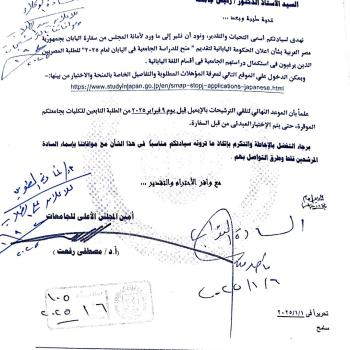 السيد الأستاذ الدكتور / رئيس جامعة
تحية طيبة وبعد ...
نهدى لسيادتكم أسمى التحيات والتقدير، ونود أن نشير إلى ما ورد لأمانة المجلس من سفارة اليابان بجمهورية
مصر العربية بشأن إعلان الحكومة اليابانية لتقديم " منح للدراسة الجامعية في اليابان لعام ٢٠٢٥" للطلبة المصريين
الذين يرغبون في استكمال دراستهم الجامعية في أقسام اللغة اليابانية.
ويمكن الدخول على الموقع التالي لمعرفة المؤهلات المطلوبة والتفاصيل الخاصة بالمنحة والاختيار من بينها:-
https://www.studyinjapan.go.jp/en/smap-stopj-applications-japanese.html
علماً بأن الموعد النهائي لتلقي الترشيحات بالإيميل قبل يوم ٩ فبراير ٢٠٢٥ من الطلبة التابعين للكليات بجامعتكم
الموقرة، حتى يتم الإختيار المبدئى من قبل السفارة.
برجاء التفضل بالإحاطة والتكرم بإتخاذ ما ترونه سيادتكم مناسباً فى هذا الشأن مع موافاتنا بإسماء السادة
المرشحين فقط وطرق التواصل بهم .
مع وافر الاحترام والتقدير ...
أمين المجلس الأعلى للجامعات
(أ.د/ مصطفى رفعت )
٢٠٢٥/١/٦
١٠٥
١٦
٢٠٢٥
تحريراً في ٢٠٢٥/١/١
سامح